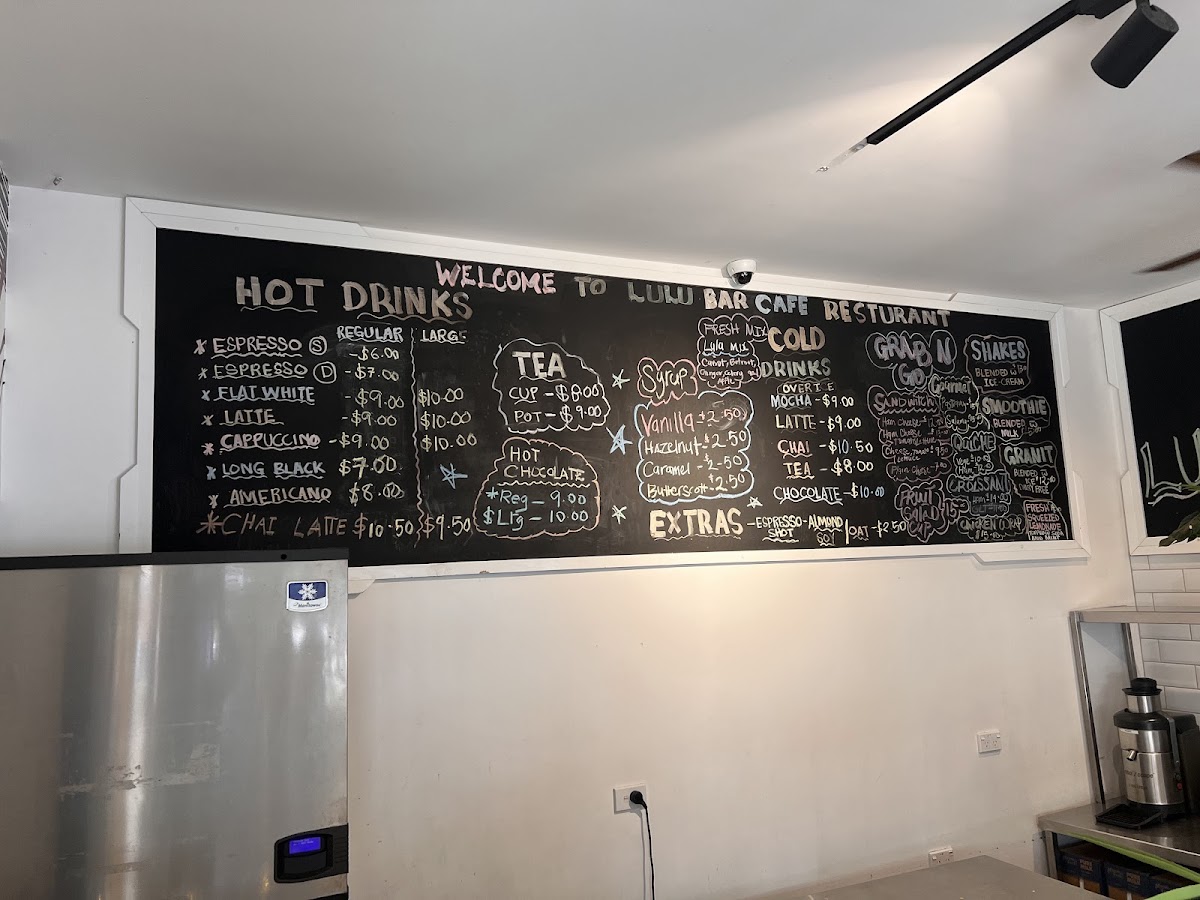 WELCOME TO LULU BAR CAFE RESTURANT
HOT DRINKS
REGULAR LARGE
ESPRESSO S -$6.00
ESPRESSO D -$7.00
FLAT WHITE -$9.00 $10.00
LATTE -$9.00 $10.00
CAPPUCCINO -$9.00 $10.00
LONG BLACK $7.00
AMERICANO $8.00
CHAI LATTE $10.50 $9.50
TEA
CUP -$8.00
POT -$9.00
HOT
CHOCOLATE
*Reg - 9.00
$Lrg - 10.00
Syrup
Vanilla -$2.50
Hazelnut -$2.50
Caramel -$2.50
Butterscott -$2.50
FRESH MIX
Lula MIX
COLD
DRINKS
OVER ICE
MOCHA -$9.00
LATTE -$9.00
CHAI -$10.50
TEA -$8.00
CHOCOLATE -$10.00
EXTRAS -ESPRESSO SHOT -ALMOND SOY /OAT -$2.50
GRAB N
GO
SANDWICH
Ham Cheese
Gourmet
QUICHE
CROISSANT
FRUIT
SALAD
CUP
CHICKEN WRAP
SHAKES
BLENDED W
ICE-CREAM
SMOOTHIE
BLENDED
MILK
GRANIT
BLENDED
FRESH
SQUEEZED
LEMONADE